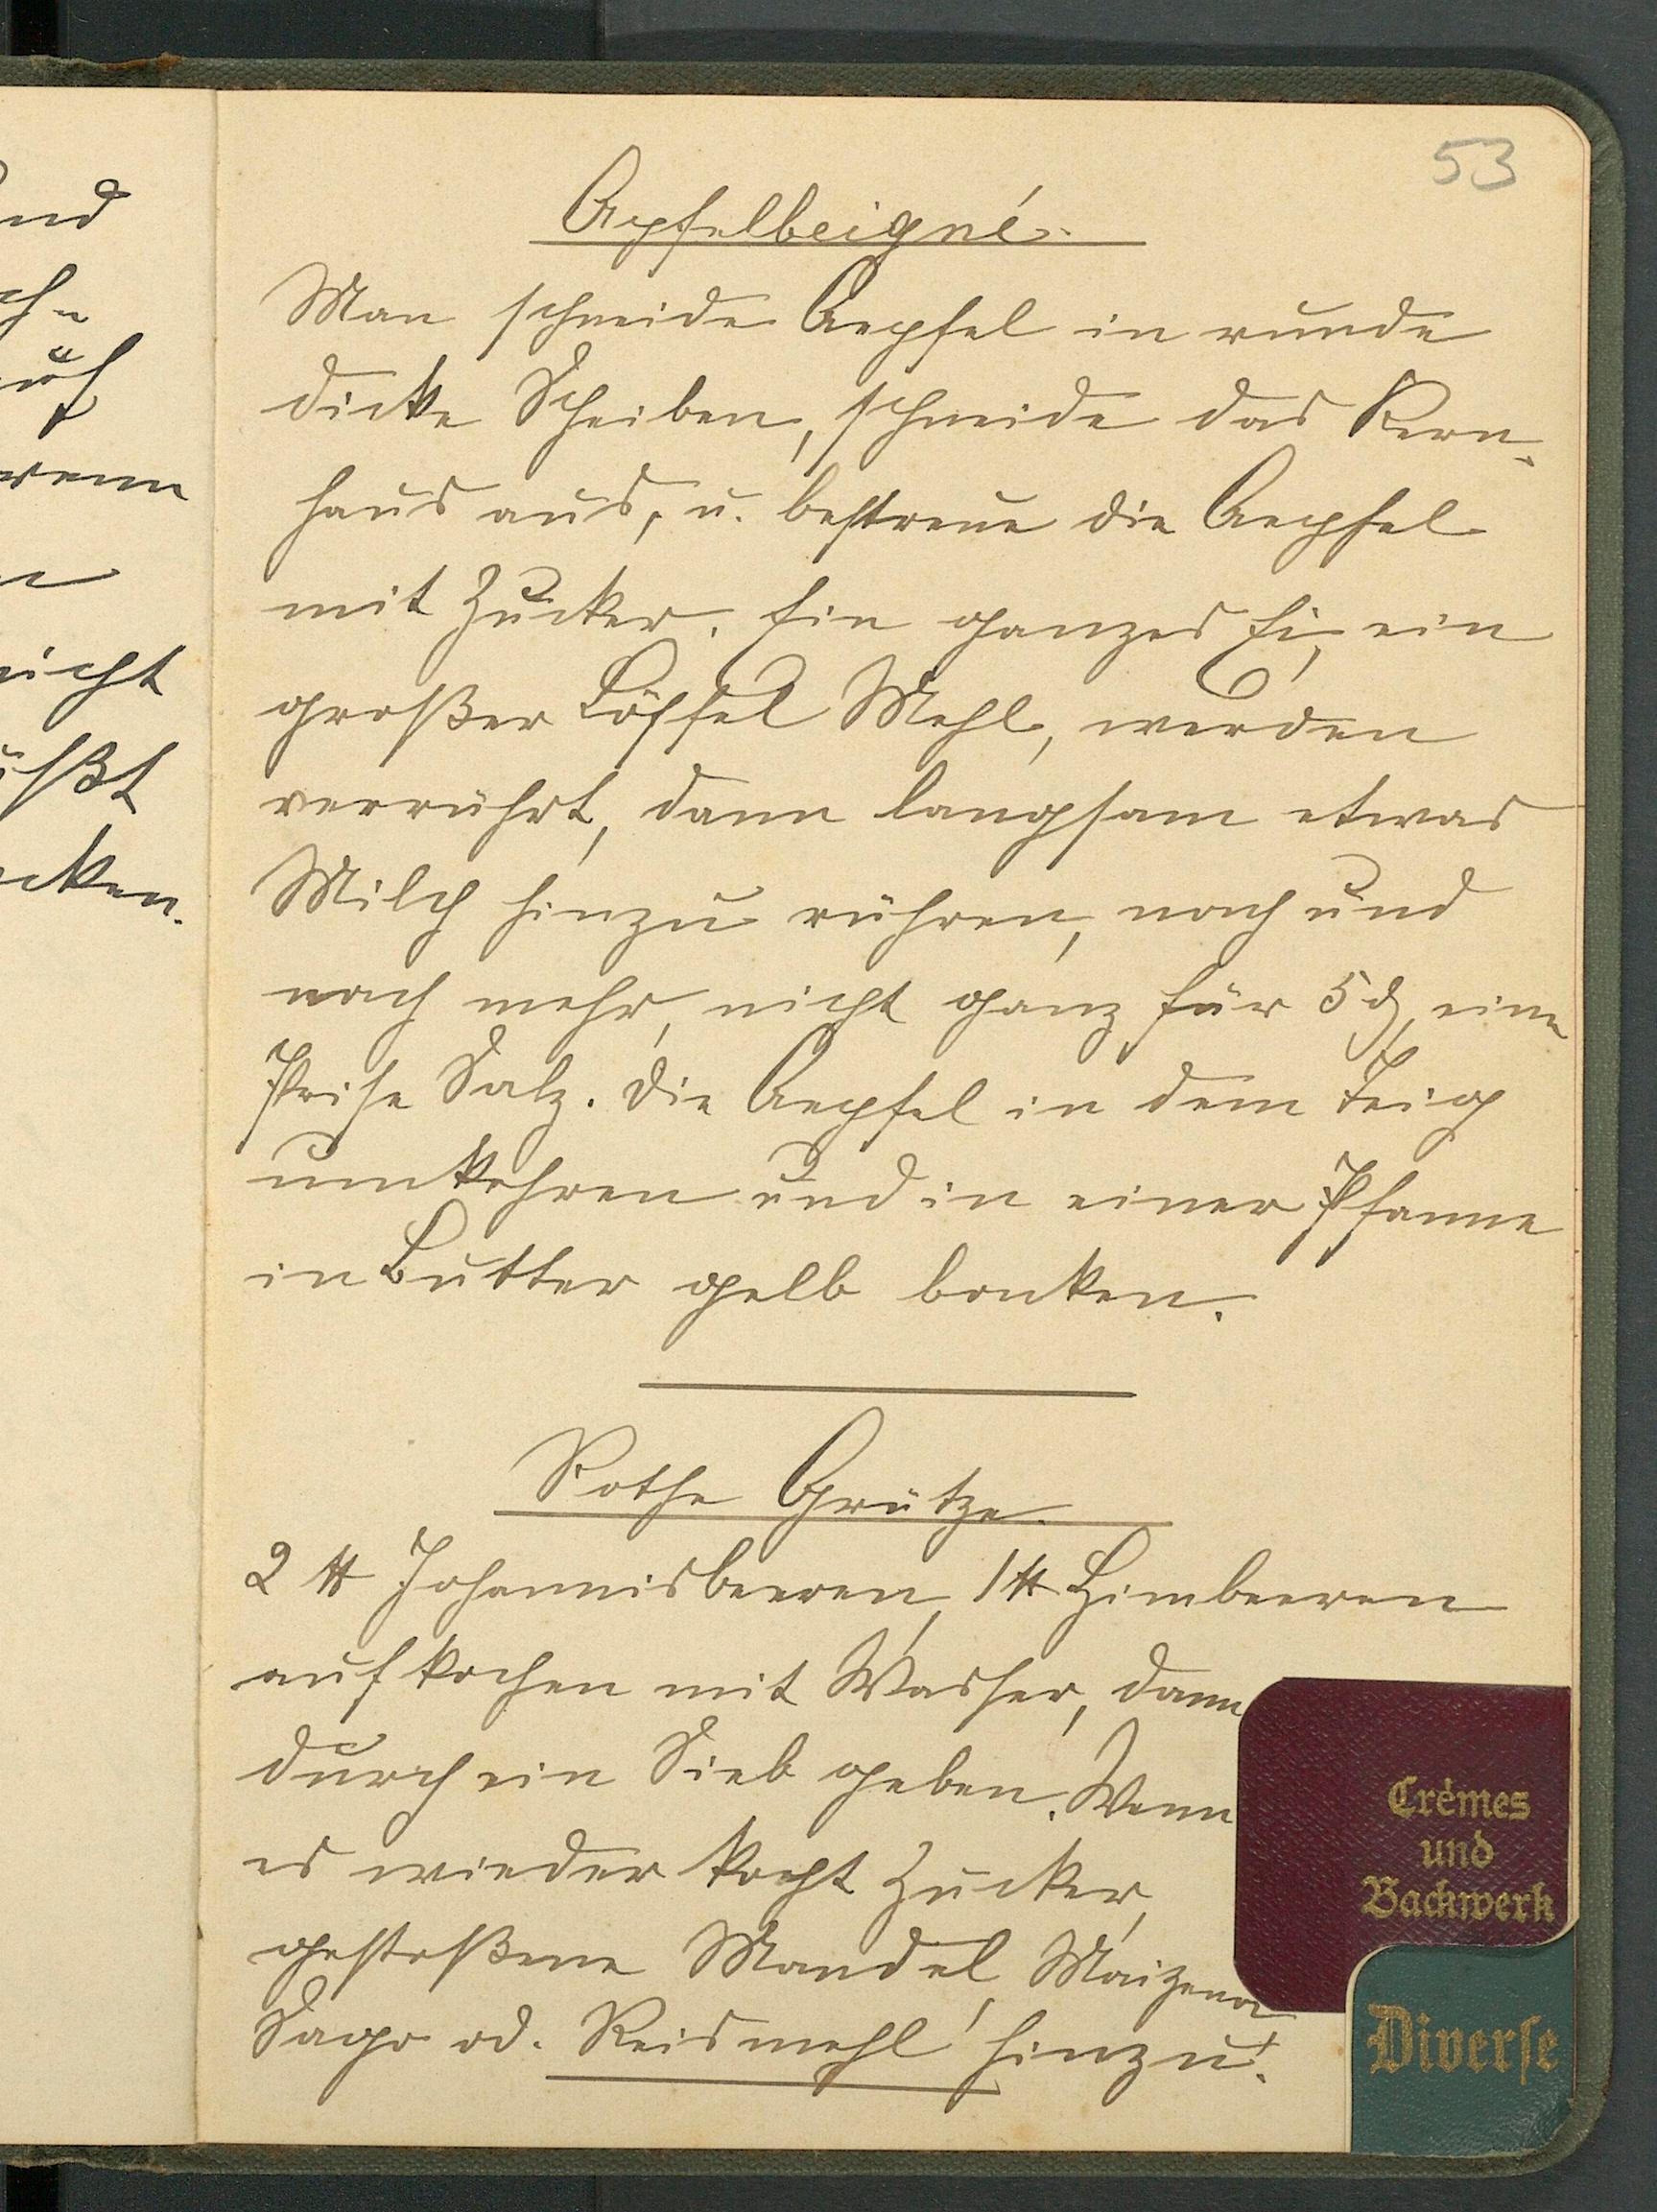 53
Apfelbeigné.
Man schneide Aepfel in runde
dicke Scheiben, schneide das Kern-
haus aus, u. bestreue die Aepfel
mit Zucker. Ein ganzes Ei, ein
großer Löffel Mehl, werden
verrührt, dann langsam etwas
Milch hinzu rühren, nach und
nach mehr, nicht ganz für 5 ₰, eine
Prise Salz. Die Aepfel in dem Teig
umkehren und in einer Pfanne
in Butter gelb backen.
Rothe Grütze.
2 ℔ Johannisbeeren, 1 ℔ Himbeeren
aufkochen mit Wasser, dann
durch ein Sieb geben. Wenn
es wieder kocht Zucker,
gestoßene Mandel, Maizena
Sago od. Reismehl hinzu.
Crèmes
und
Backwerk
Diverse
nd
ch-
auf
wenn
n
nicht
üßt
cken.